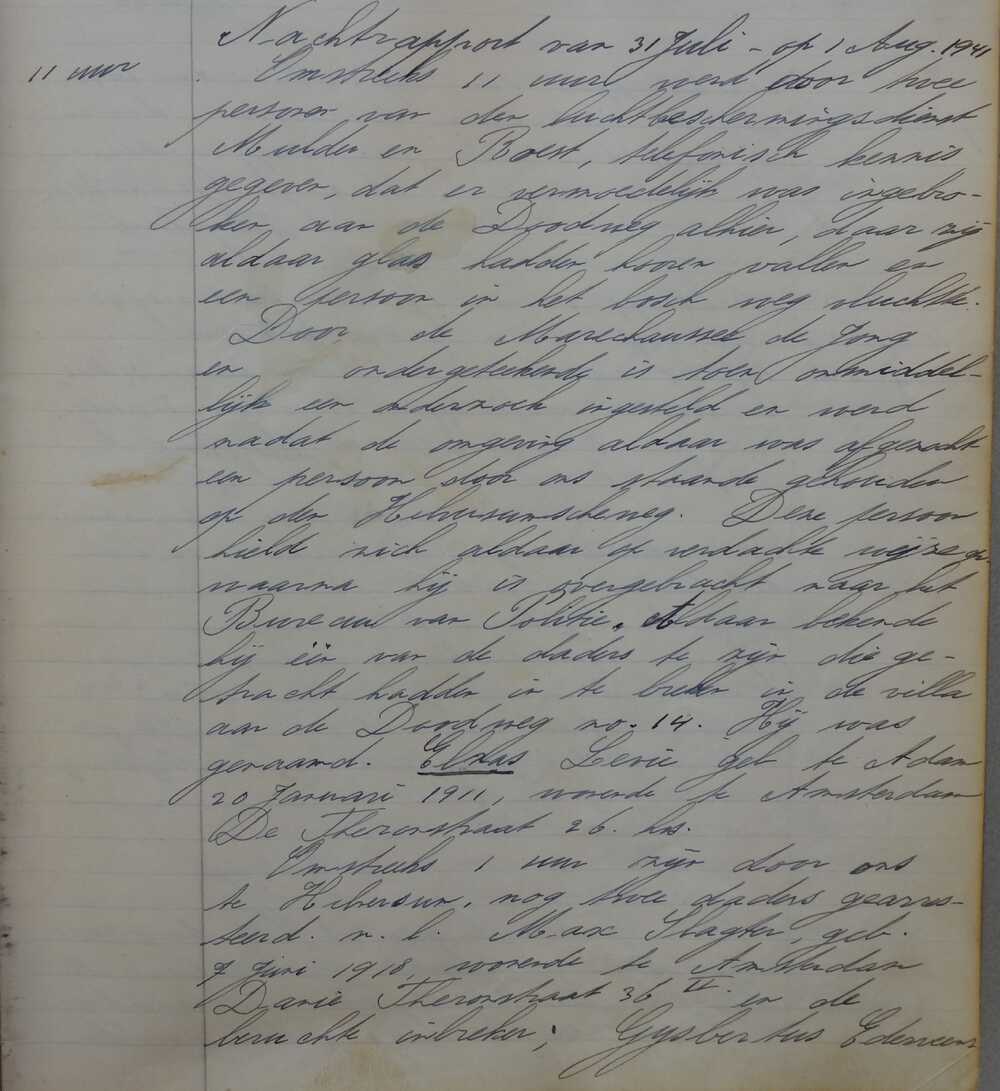 Nachtrapport van 31 Juli - op 1 Aug. 1941
11 uur
Omstreeks 11 uur werd door twee
personen van den luchtbeschermingsdienst
Mulder en Roest, telefonisch kennis
gegeven, dat er vermoedelijk was ingebro-
ken aan de Doodweg alhier, daar zij
aldaar glas hadden hooren vallen en
een persoon in het bosch weg vluchtte.
Door de Marechaussee de Jong
en ondergeteekende is toen onmiddel-
lijk een onderzoek ingesteld en werd
nadat de omgeving aldaar was afgezocht
een persoon door ons staande gehouden
op den Hilversumscheweg. Deze persoon
hield zich aldaar op verdachte wijze op
waarna hij is overgebracht naar het
Bureau van Politie. Aldaar bekende
hij één van de daders te zijn die ge-
tracht hadden in te breken in de villa
aan de Doodweg no. 14. Hij was
genaamd. Elkas Levie geb te Adam
20 Januari 1911, wonende te Amsterdam
De Theronstraat 26. hs.
Omstreeks 1 uur zijn door ons
te Hilversum, nog twee daders gearres-
teerd. n. l. Max Slagter, geb.
7 Juni 1918, wonende te Amsterdam
Danie Theronstraat 36 II en de
beruchte inbreker; Gysbertus Ederveen